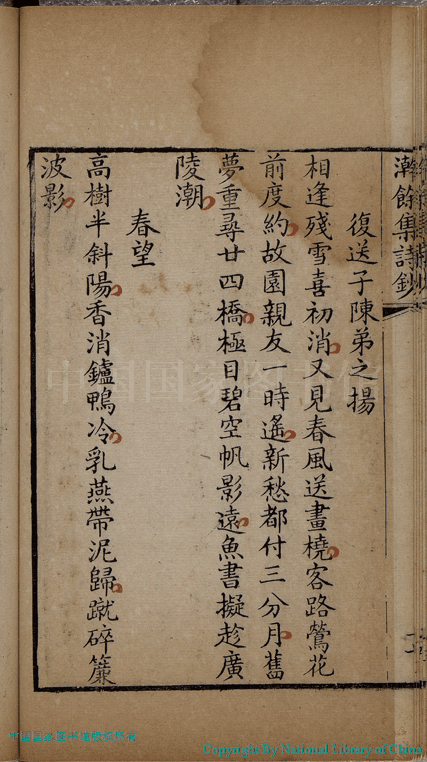 瀚餘集詩鈔
復送子陳弟之揚
相逢殘雪喜初消又見春風送畫橈客路鶯花
前度約故園親友一時遙新愁都付三分月舊
夢重尋廿四橋極目碧空帆影遠魚書擬趁廣
陵潮
春望
高樹半斜陽香消鑪鴨冷乳燕帶泥歸蹴碎簾
波影
中国国家图书馆
Copyright By National Library of China